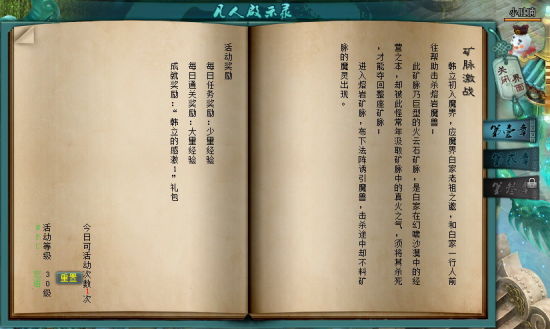 凡人启示录
小顺南
关闭界面
第壹章
第贰章
矿脉激战
韩立初入魔界,应魔界白家老祖之邀,和白家一行人前
往帮助击杀熔岩魔兽!
此矿脉乃巨型的火云石矿脉,是白家在幻啸沙漠中的经
营之本,却被此怪常年汲取矿脉中的真火之气,须将其杀死
,才能夺回整座矿脉!
进入熔岩矿脉,布下法阵诱引魔兽,击杀途中却不料矿
脉的魔灵出现。
活动奖励
每日任务奖励:少量经验
每日通关奖励:大量经验
成就奖励:“韩立的感激1”礼包
今日可活动次数1次
活动等级 30级
重置